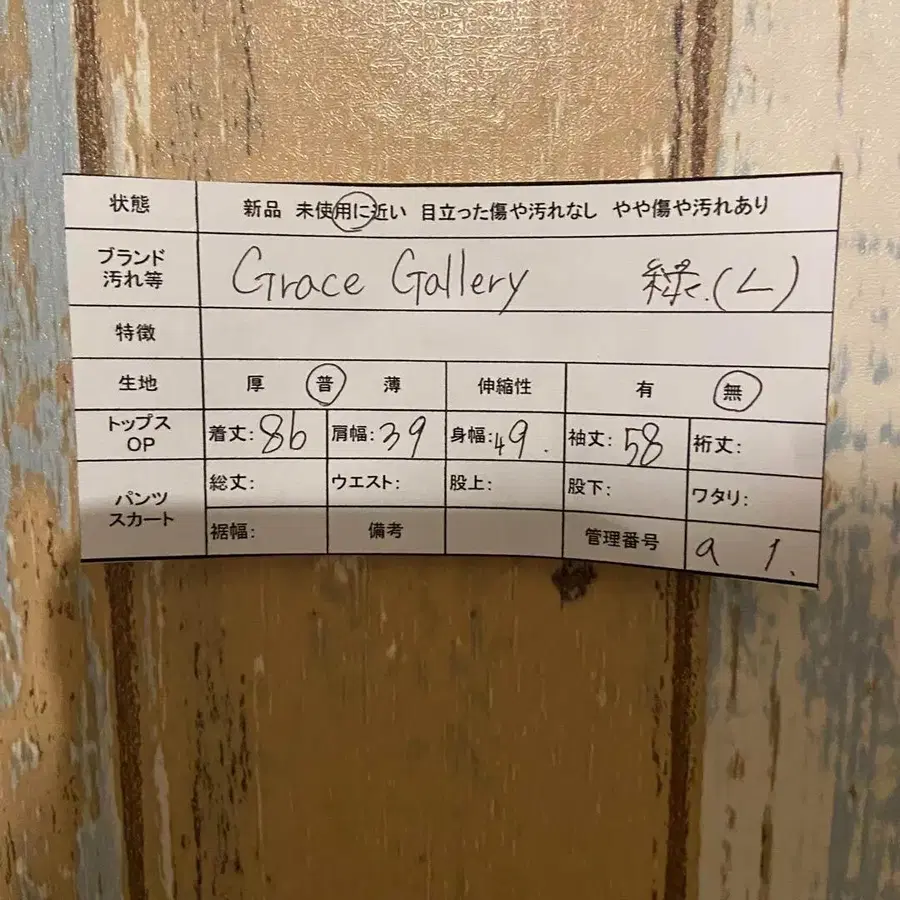 状態 新品 未使用に近い 目立った傷や汚れなし やや傷や汚れあり
ブランド
汚れ等 Grace Gallery 緑.(L)
特徴
生地 厚 普 薄 伸縮性 有 無
トップス
OP 着丈:86 肩幅:39 身幅:49. 袖丈:58 裄丈:
パンツ
スカート 総丈: ウエスト: 股上: 股下: ワタリ:
裾幅: 備考 管理番号 a 1.